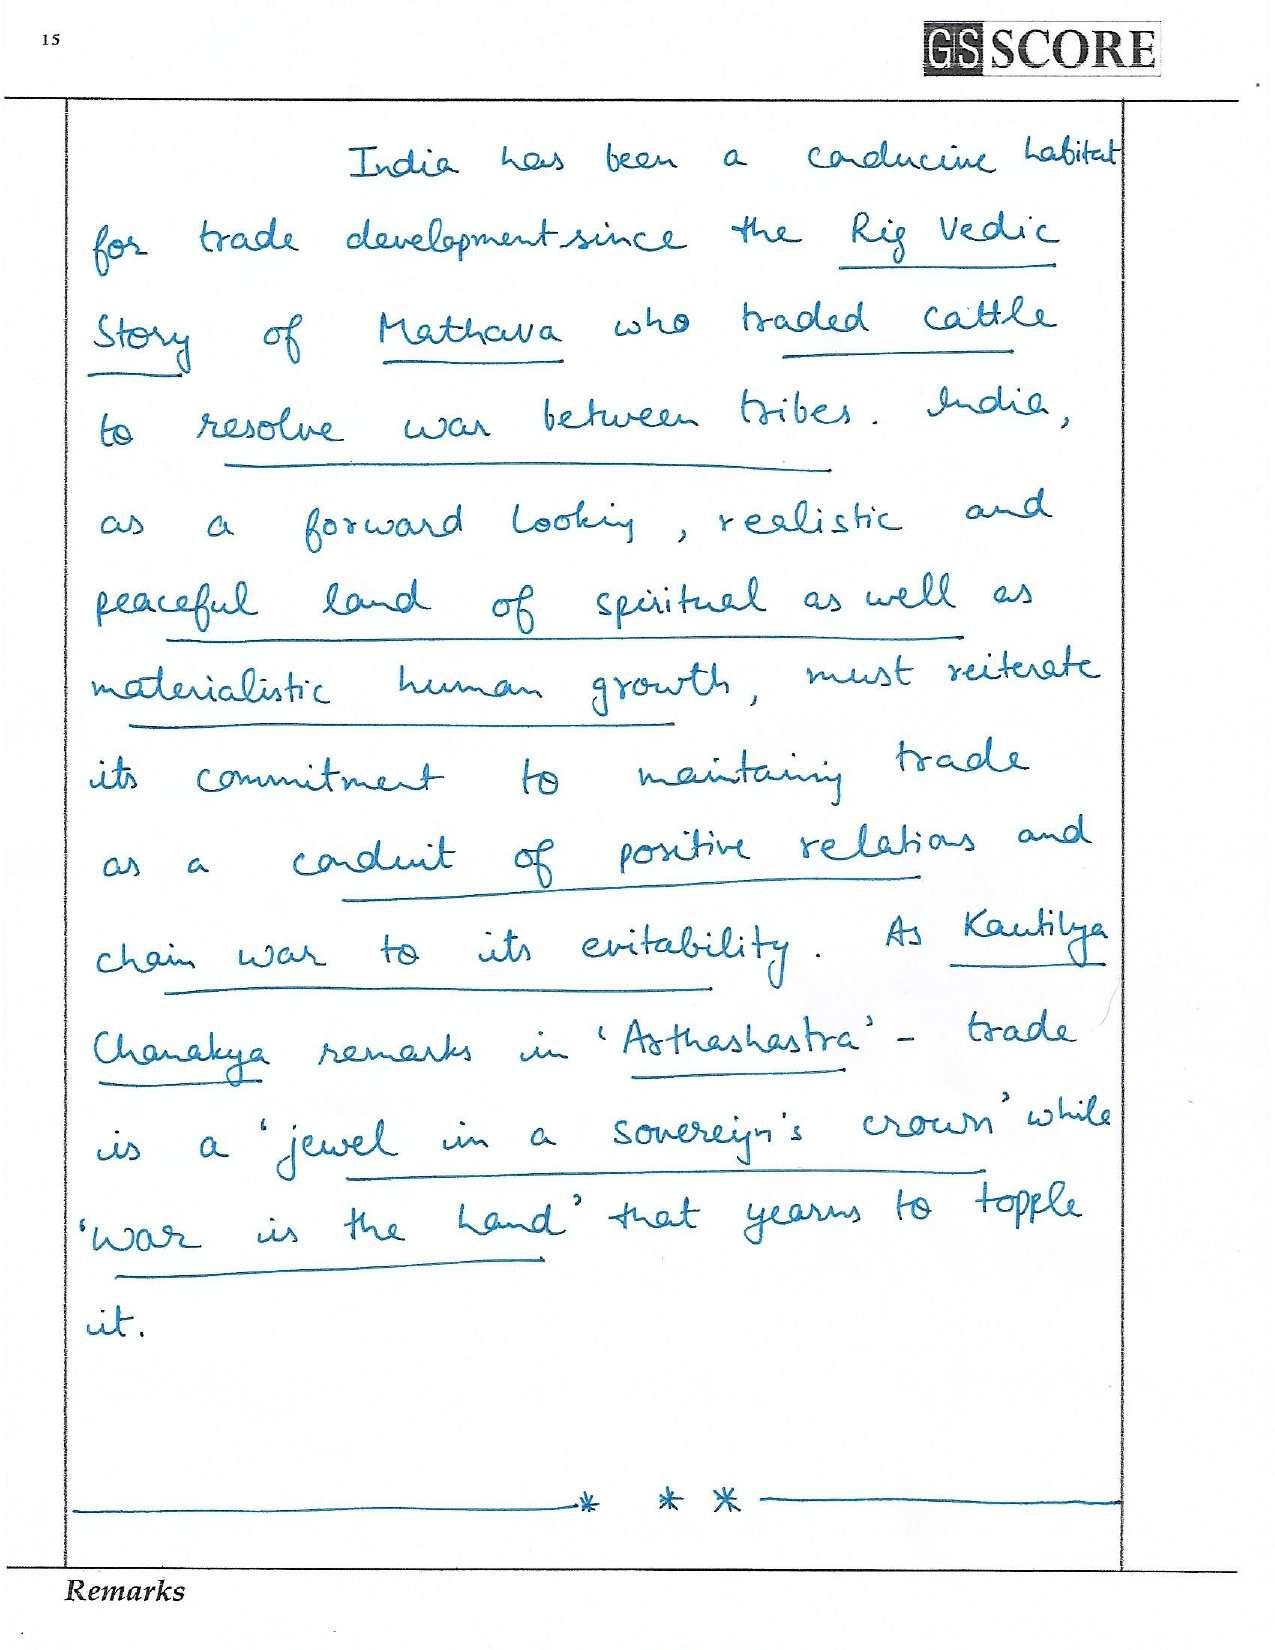 15
GS SCORE
India has been a conducive habitat
for trade development since the Rig Vedic
Story of Mathava who traded cattle
to resolve war between tribes. India,
as a forward looking, realistic and
peaceful land of spiritual as well as
materialistic human growth, must reiterate
its commitment to maintaing trade
as a conduit of positive relations and
chain war to its evitability. As Kautilya
Chanakya remarks in 'Arthashastra' - trade
is a 'jewel in a sovereign's crown' while
'war is the hand' that yearns to topple
it.
* * *
Remarks